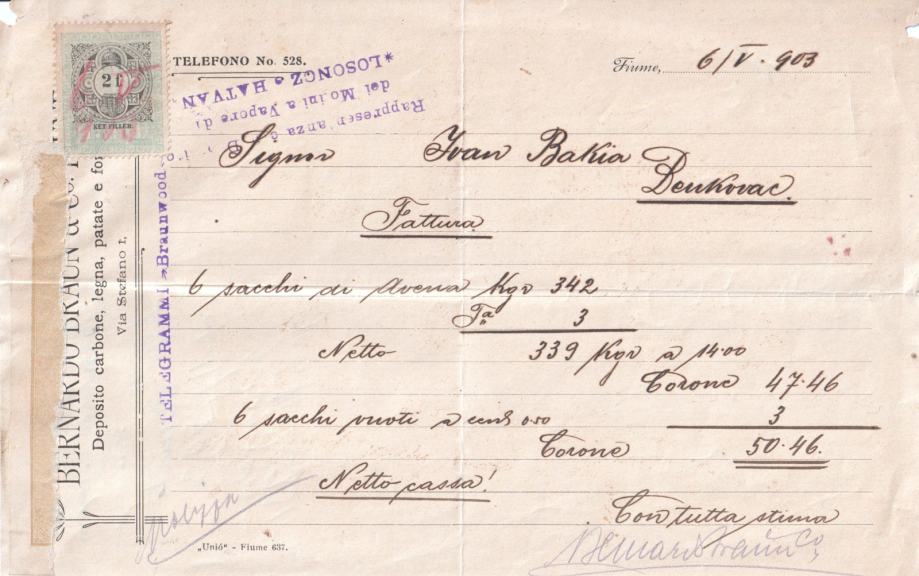 TELEFONO No. 528.
Fiume, 6/V. 903
2 f
KÉT FILLÉR.
*LOSONCZ & HATVAN
dei Molini a Vapore di
Rappresentanza &
TELEGRAMMI „Braunwood
BERNARDO BRAUN & Co.
Deposito carbone, legna, patate e
Via Stefano 1.
Signor Ivan Bakia
Denkovac.
Fattura
6 sacchi di Avena Kgr 342
Tª 3
Netto 339 Kgr a 14.00
Corone 47.46
6 sacchi vuoti a cent 0.50 3
Corone 50.46.
Netto cassa!
Con tutta stima
Bernardo Braun Co.
„Unió" - Fiume 637.